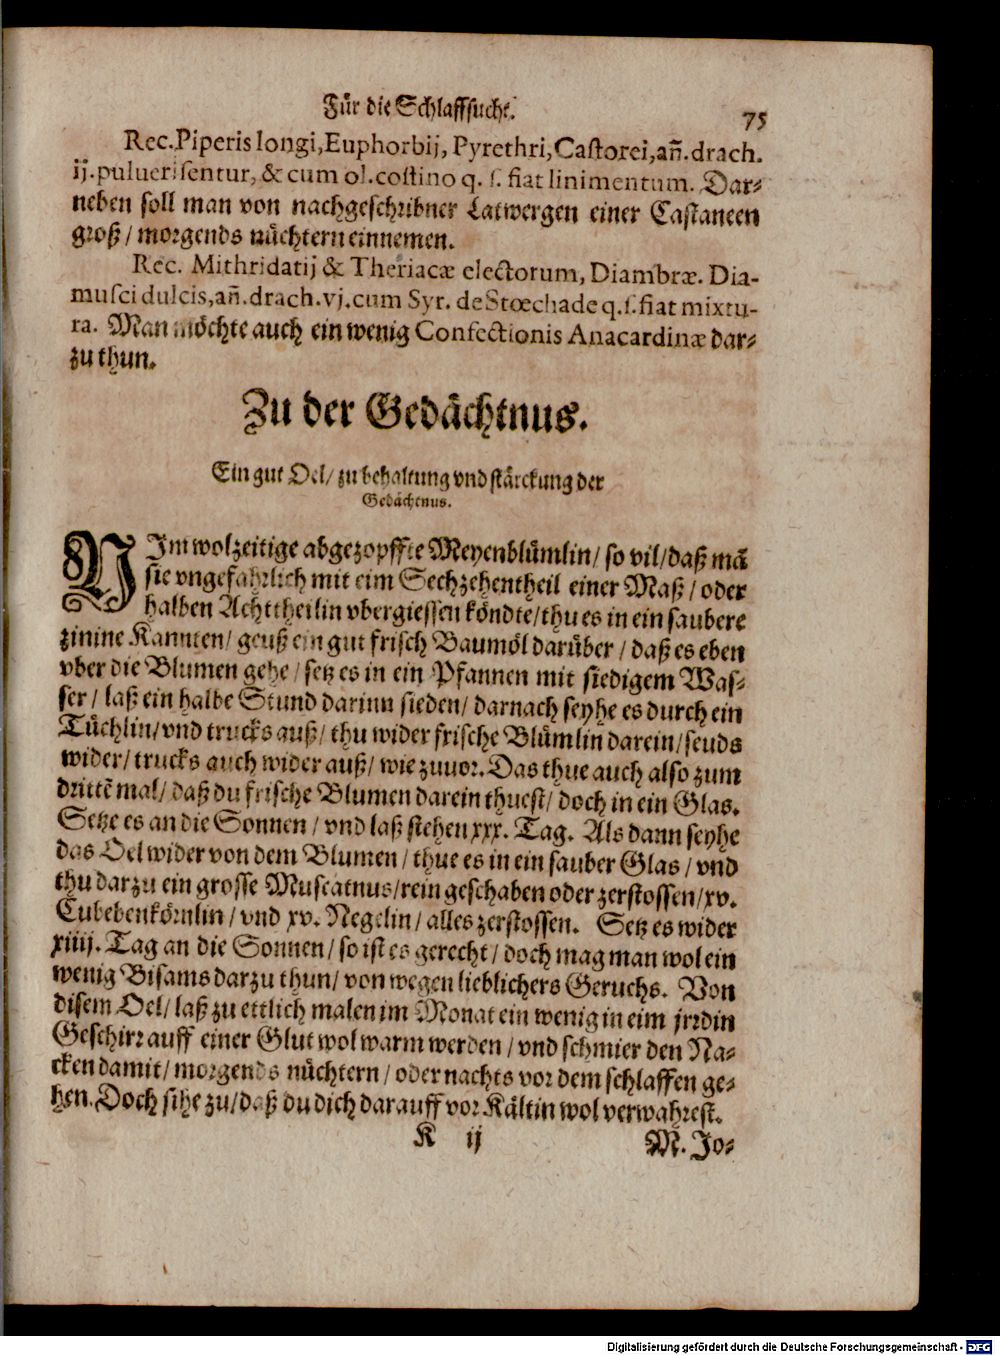 Für die Schlaffsucht.
75
Rec. Piperis longi, Euphorbij, Pyrethri, Castorei, añ. drach.
ij. puluerisentur, & cum ol. costino q. s. fiat linimentum. Dar-
neben soll man von nachgeschribner Latwergen einer Castaneen
groß / morgends nüchtern einnemen.
Rec. Mithridatij & Theriacæ electorum, Diambræ. Dia-
musci dulcis, añ. drach. vj. cum Syr. de Stœchade q. s. fiat mixtu-
ra. Man möchte auch ein wenig Confectionis Anacardinæ dar-
zu thun.
Zu der Gedächtnus.
Ein gut Oel / zu behaltung vnd stärckung der
Gedächtnus.
NIm wolzeitige abgezopffte Meyenblümlin / so vil / daß mã
sie vngefahrlich mit eim Sechzehentheil einer Maß / oder
halben Achttheilin vbergiessen köndte / thu es in ein saubere
zinine Kannten / geuß ein gut frisch Baumöl darüber / daß es eben
vber die Blumen gehe / setz es in ein Pfannen mit siedigem Was-
ser / laß ein halbe Stund darinn sieden / darnach seyhe es durch ein
Tüchlin / vnd trucks auß / thu wider frische Blümlin darein / seuds
wider / trucks auch wider auß / wie zuvor. Das thue auch also zum
drittẽ mal / daß du frische Blumen darein thuest / doch in ein Glas.
Setze es an die Sonnen / vnd laß stehen xxx. Tag. Als dann seyhe
das Oel wider von dem Blumen / thue es in ein sauber Glas / vnd
thu darzu ein grosse Muscatnus / rein geschaben oder zerstossen / xv.
Cubebenkörnlin / vnd xv. Negelin / alles zerstossen. Setz es wider
xiiij. Tag an die Sonnen / so ist es gerecht / doch mag man wol ein
wenig Bisams darzu thun / von wegen lieblichers Geruchs. Von
disem Oel / laß zu ettlich malen im Monat ein wenig in eim jrrdin
Geschirr auff einer Glut wol warm werden / vnd schmier den Na-
cken damit / morgends nüchtern / oder nachts vor dem schlaffen ge-
hen. Doch sihe zu / daß du dich darauff vor Kältin wol verwahrest.
K ij
M. Jo-
Digitalisierung gefördert durch die Deutsche Forschungsgemeinschaft - DFG